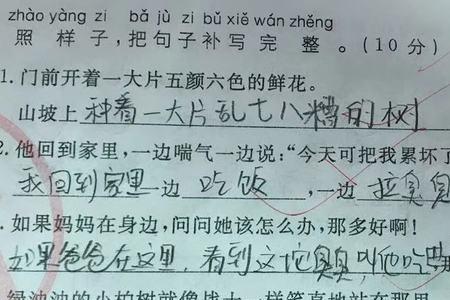 zhào yàng zi bǎ jù zi bǔ xiě wán zhěng
照样子,把句子补写完整。(10分)
1.门前开着一大片五颜六色的鲜花。
山坡上种着一大片乱七八糟的树
2.他回到家里,一边喘气一边说:“今天可把我累坏了
我回到家里一边吃饭,一边拉臭臭
.如果妈妈在身边,问问她该怎么办,那多好啊!
如果爸爸在这里,看到这坨臭臭叫他吃
绿油油的小柏树就像战士一样笔直地站在那里